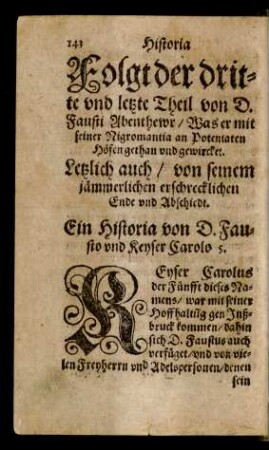 143 Historia
Folgt der drit-
te vnd letzte Theil von D.
Fausti Abenthewr / Was er mit
seiner Nigromantia an Potentaten
Höfen gethan vnd gewircket.
Letzlich auch / von seinem
jämmerlichen erschrecklichen
Ende vnd Abschiedt.
Ein Historia von D. Fau-
sto vnd Keyser Carolo 5.
KEyser Carolus
der Fünfft dieses Na-
mens / war mit seiner
Hoffhaltüg gen Inß-
bruck kommen / dahin
sich D. Faustus auch
verfüget / vnd von vie-
len Freyherrn vnd Adelspersonen / denen
sein